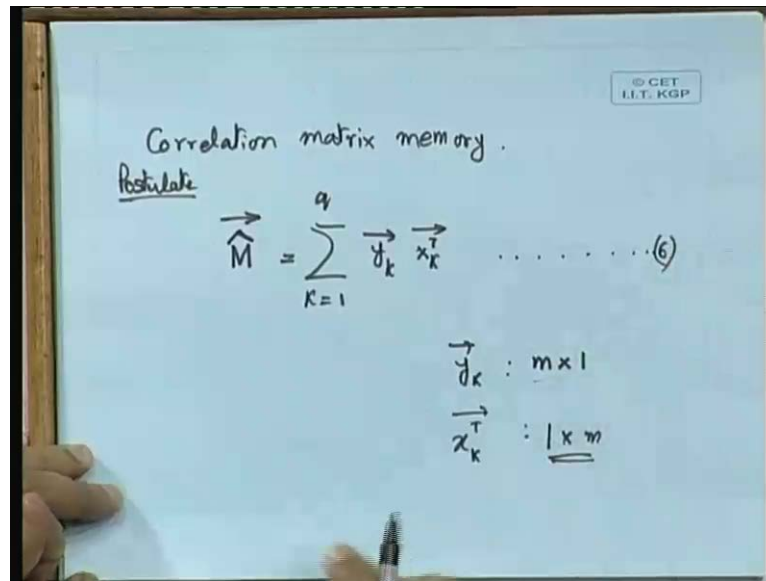 © CET
I.I.T. KGP
Correlation matrix memory.
Postulate
q
M̂ = ∑ y_k x_k^T ........(6)
K=1
y_k : m x 1
x_k^T : 1 x m